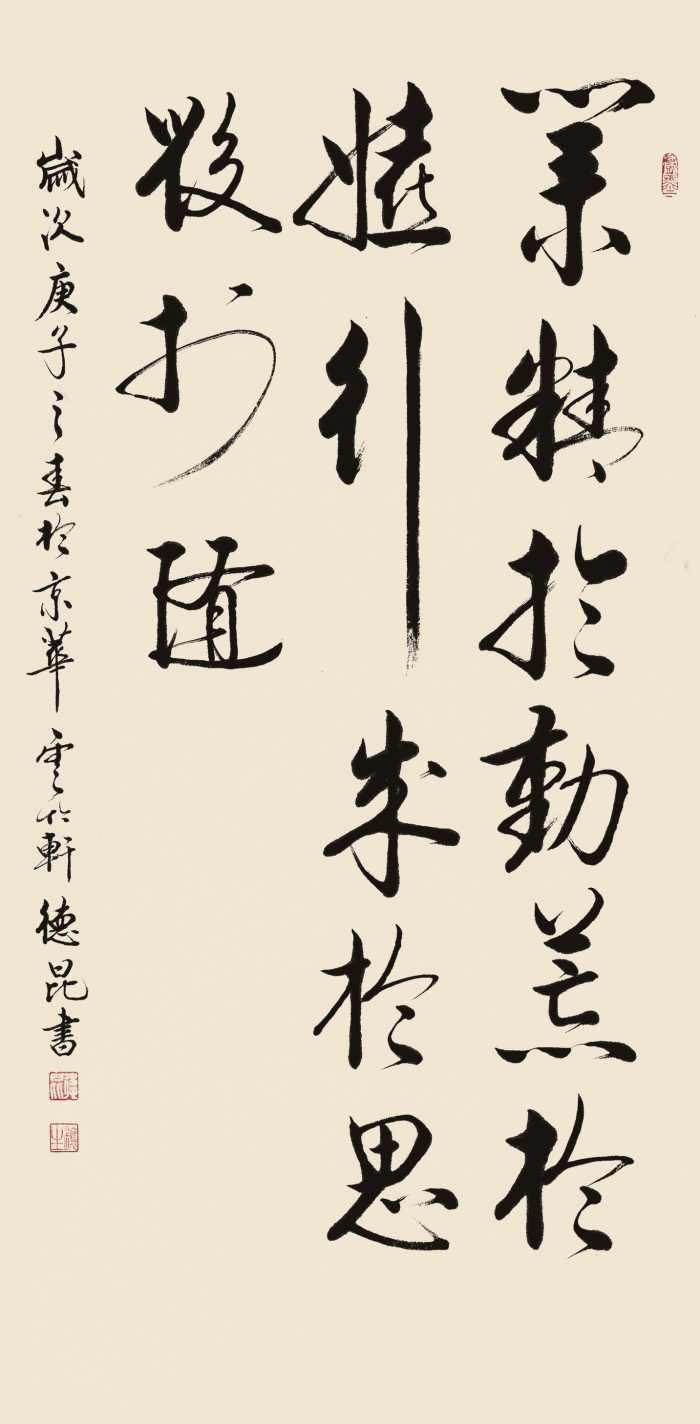 業精於勤荒於
嬉行成於思
毀於隨
歲次庚子之春於京華雲竹軒德昆書